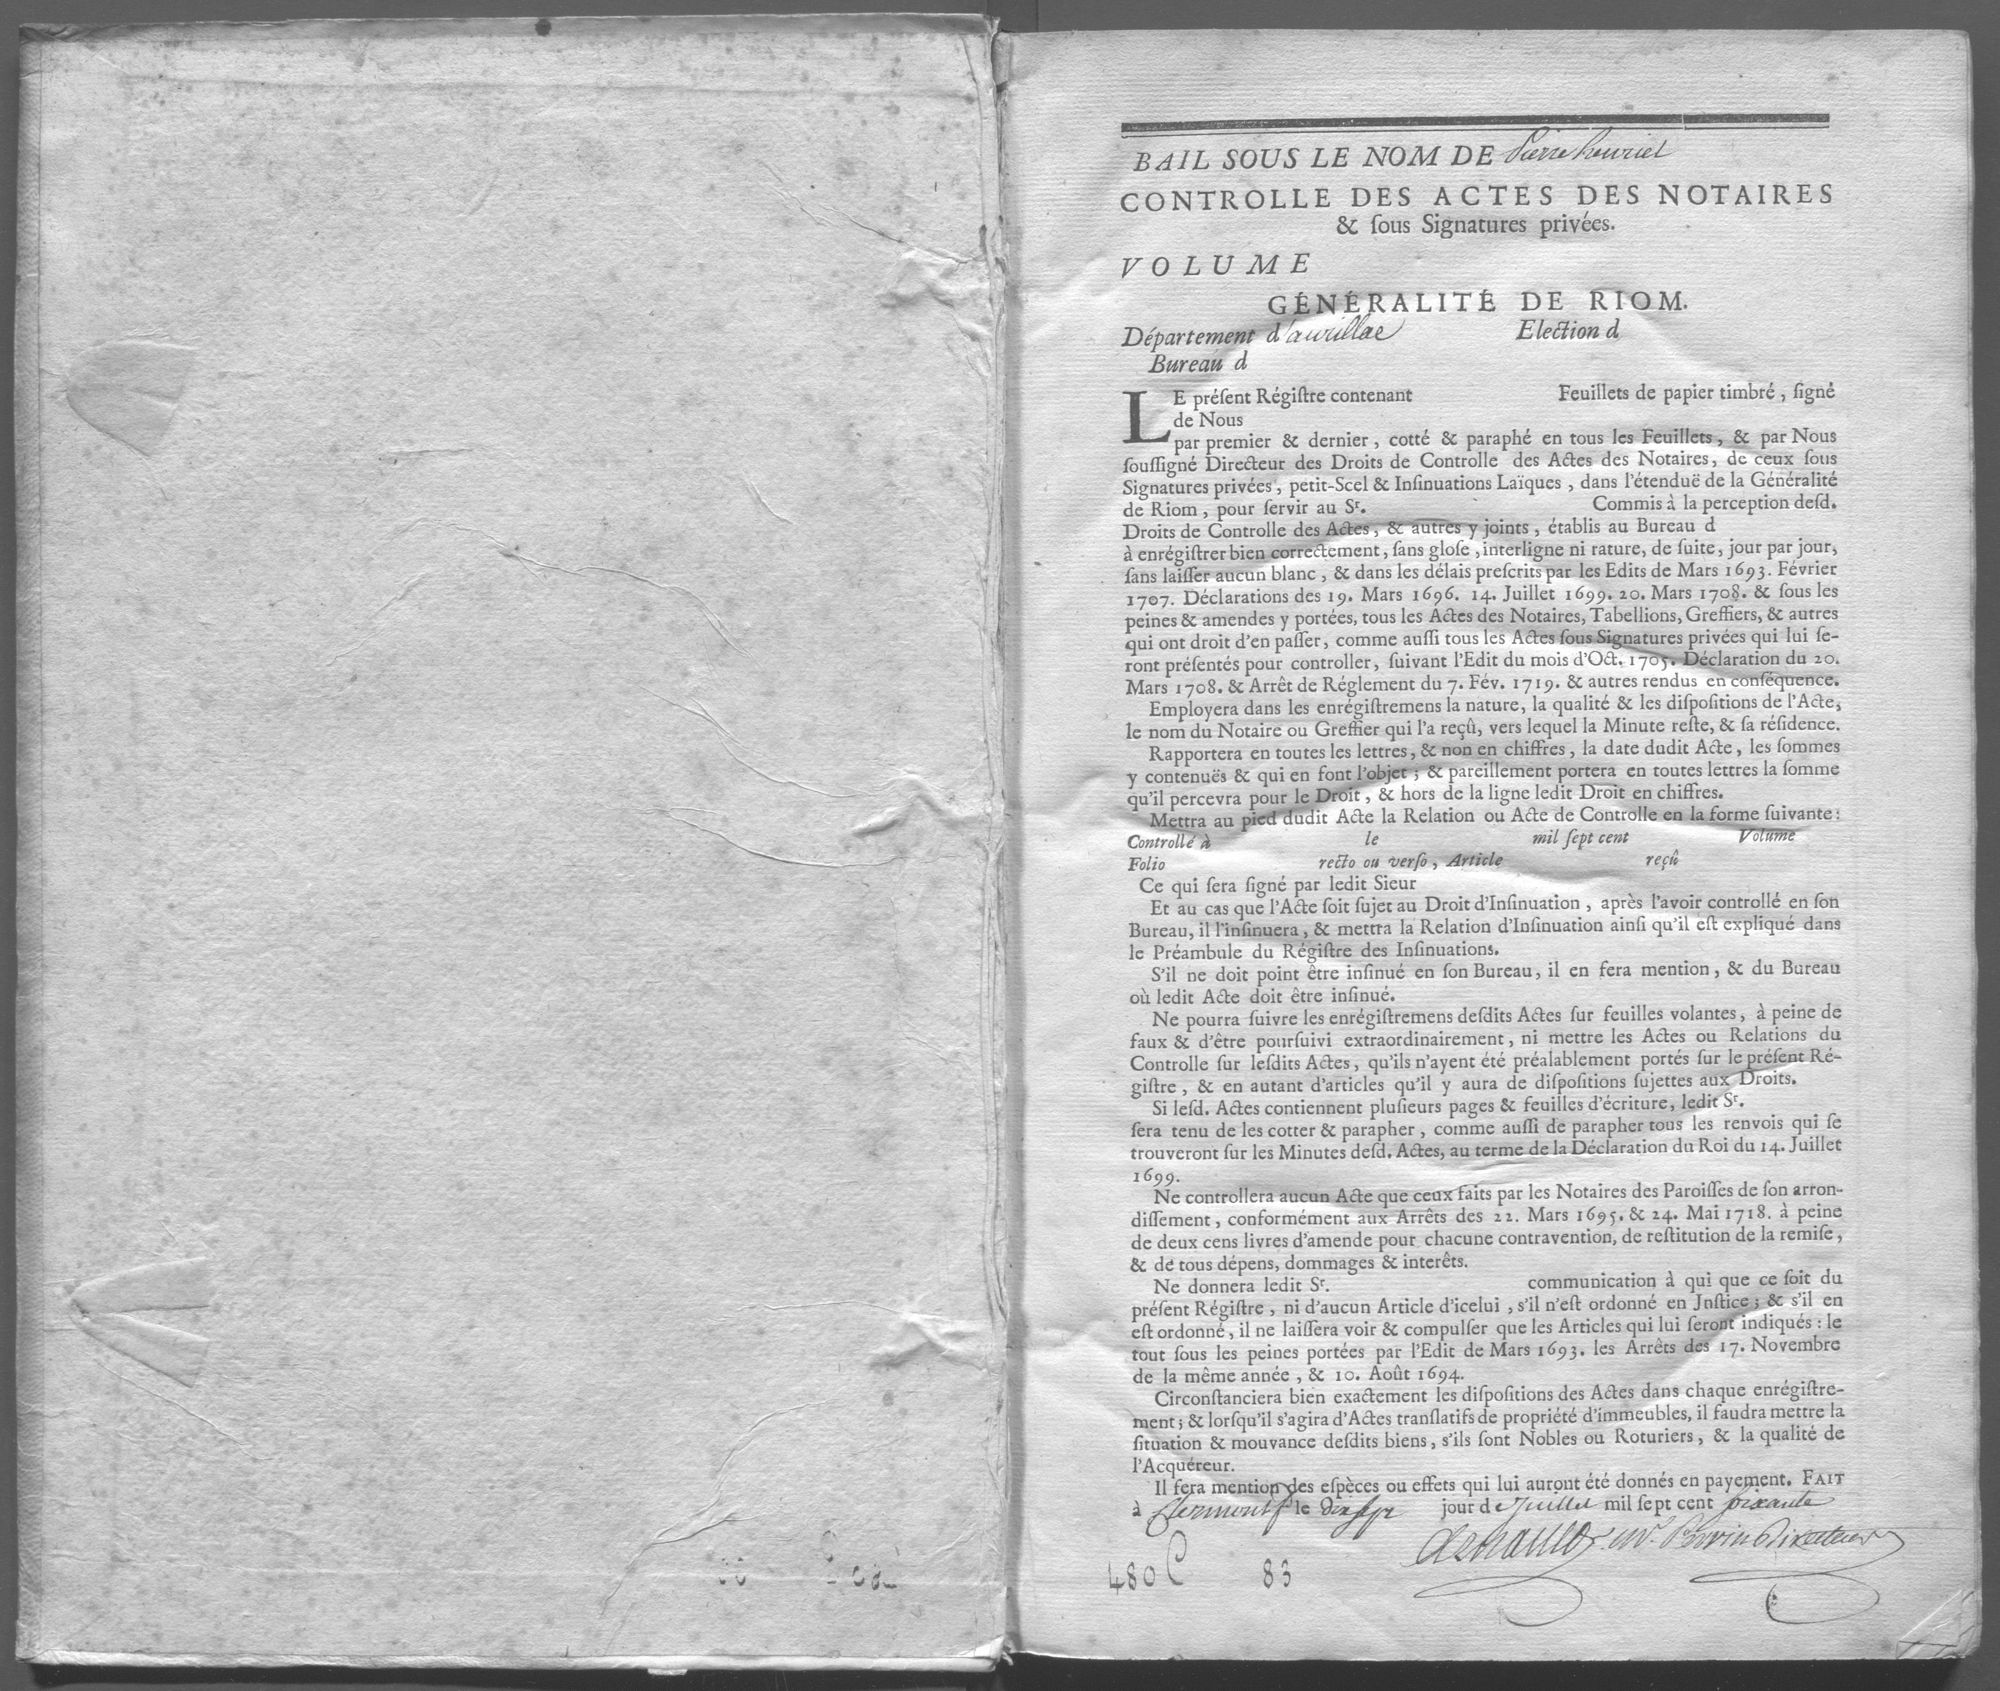 BAIL SOUS LE NOM DE Pierre henriet
CONTROLLE DES ACTES DES NOTAIRES
& ſous Signatures privées.
VOLUME
GÉNÉRALITÉ DE RIOM.
Département d'aurillac Election d
Bureau d
LE préſent Régiſtre contenant Feuillets de papier timbré, ſigné
de Nous
par premier & dernier, cotté & paraphé en tous les Feuillets, & par Nous
ſouſſigné Directeur des Droits de Controlle des Actes des Notaires, de ceux ſous
Signatures privées, petit-Scel & Inſinuations Laïques, dans l'étenduë de la Généralité
de Riom, pour ſervir au Sr. Commis à la perception deſd.
Droits de Controlle des Actes, & autres y joints, établis au Bureau d
à enrégiſtrer bien correctement, ſans gloſe, interligne ni rature, de ſuite, jour par jour,
ſans laiſſer aucun blanc, & dans les délais preſcrits par les Edits de Mars 1693. Février
1707. Déclarations des 19. Mars 1696. 14. Juillet 1699. 20. Mars 1708. & ſous les
peines & amendes y portées, tous les Actes des Notaires, Tabellions, Greffiers, & autres
qui ont droit d'en paſſer, comme auſſi tous les Actes ſous Signatures privées qui lui ſe-
ront préſentés pour controller, ſuivant l'Edit du mois d'Oct. 1705. Déclaration du 20.
Mars 1708. & Arrêt de Réglement du 7. Fév. 1719. & autres rendus en conſéquence.
Employera dans les enrégiſtremens la nature, la qualité & les diſpoſitions de l'Acte,
le nom du Notaire ou Greffier qui l'a reçû, vers lequel la Minute reſte, & ſa réſidence.
Rapportera en toutes les lettres, & non en chiffres, la date dudit Acte, les ſommes
y contenuës & qui en font l'objet; & pareillement portera en toutes lettres la ſomme
qu'il percevra pour le Droit, & hors de la ligne ledit Droit en chiffres.
Mettra au pied dudit Acte la Relation ou Acte de Controlle en la forme ſuivante:
Controllé à le mil ſept cent Volume
Folio recto ou verſo, Article reçû
Ce qui ſera ſigné par ledit Sieur
Et au cas que l'Acte ſoit ſujet au Droit d'Inſinuation, après l'avoir controllé en ſon
Bureau, il l'inſinuera, & mettra la Relation d'Inſinuation ainſi qu'il eſt expliqué dans
le Préambule du Régiſtre des Inſinuations.
S'il ne doit point être inſinué en ſon Bureau, il en fera mention, & du Bureau
où ledit Acte doit être inſinué.
Ne pourra ſuivre les enrégiſtremens deſdits Actes ſur feuilles volantes, à peine de
faux & d'être pourſuivi extraordinairement, ni mettre les Actes ou Relations du
Controlle ſur leſdits Actes, qu'ils n'ayent été préalablement portés ſur le préſent Ré-
giſtre, & en autant d'articles qu'il y aura de diſpoſitions ſujettes aux Droits.
Si leſd. Actes contiennent pluſieurs pages & feuilles d'écriture, ledit Sr.
ſera tenu de les cotter & parapher, comme auſſi de parapher tous les renvois qui ſe
trouveront ſur les Minutes deſd. Actes, au terme de la Déclaration du Roi du 14. Juillet
1699.
Ne controllera aucun Acte que ceux faits par les Notaires des Paroiſſes de ſon arron-
diſſement, conformément aux Arrêts des 22. Mars 1695. & 24. Mai 1718. à peine
de deux cens livres d'amende pour chacune contravention, de reſtitution de la remiſe,
& de tous dépens, dommages & interêts.
Ne donnera ledit Sr. communication à qui que ce ſoit du
préſent Régiſtre, ni d'aucun Article d'icelui, s'il n'eſt ordonné en Jnſtice; & s'il en
eſt ordonné, il ne laiſſera voir & compulſer que les Articles qui lui ſeront indiqués: le
tout ſous les peines portées par l'Edit de Mars 1693. les Arrêts des 17. Novembre
de la même année, & 10. Août 1694.
Circonſtanciera bien exactement les diſpoſitions des Actes dans chaque enrégiſtre-
ment; & lorſqu'il s'agira d'Actes tranſlatifs de propriété d'immeubles, il faudra mettre la
ſituation & mouvance deſdits biens, s'ils ſont Nobles ou Roturiers, & la qualité de
l'Acquéreur.
Il ſera mention des eſpèces ou effets qui lui auront été donnés en payement. FAIT
à Clermont le dix sept jour de Juillet mil ſept cent soixante
480 C 83